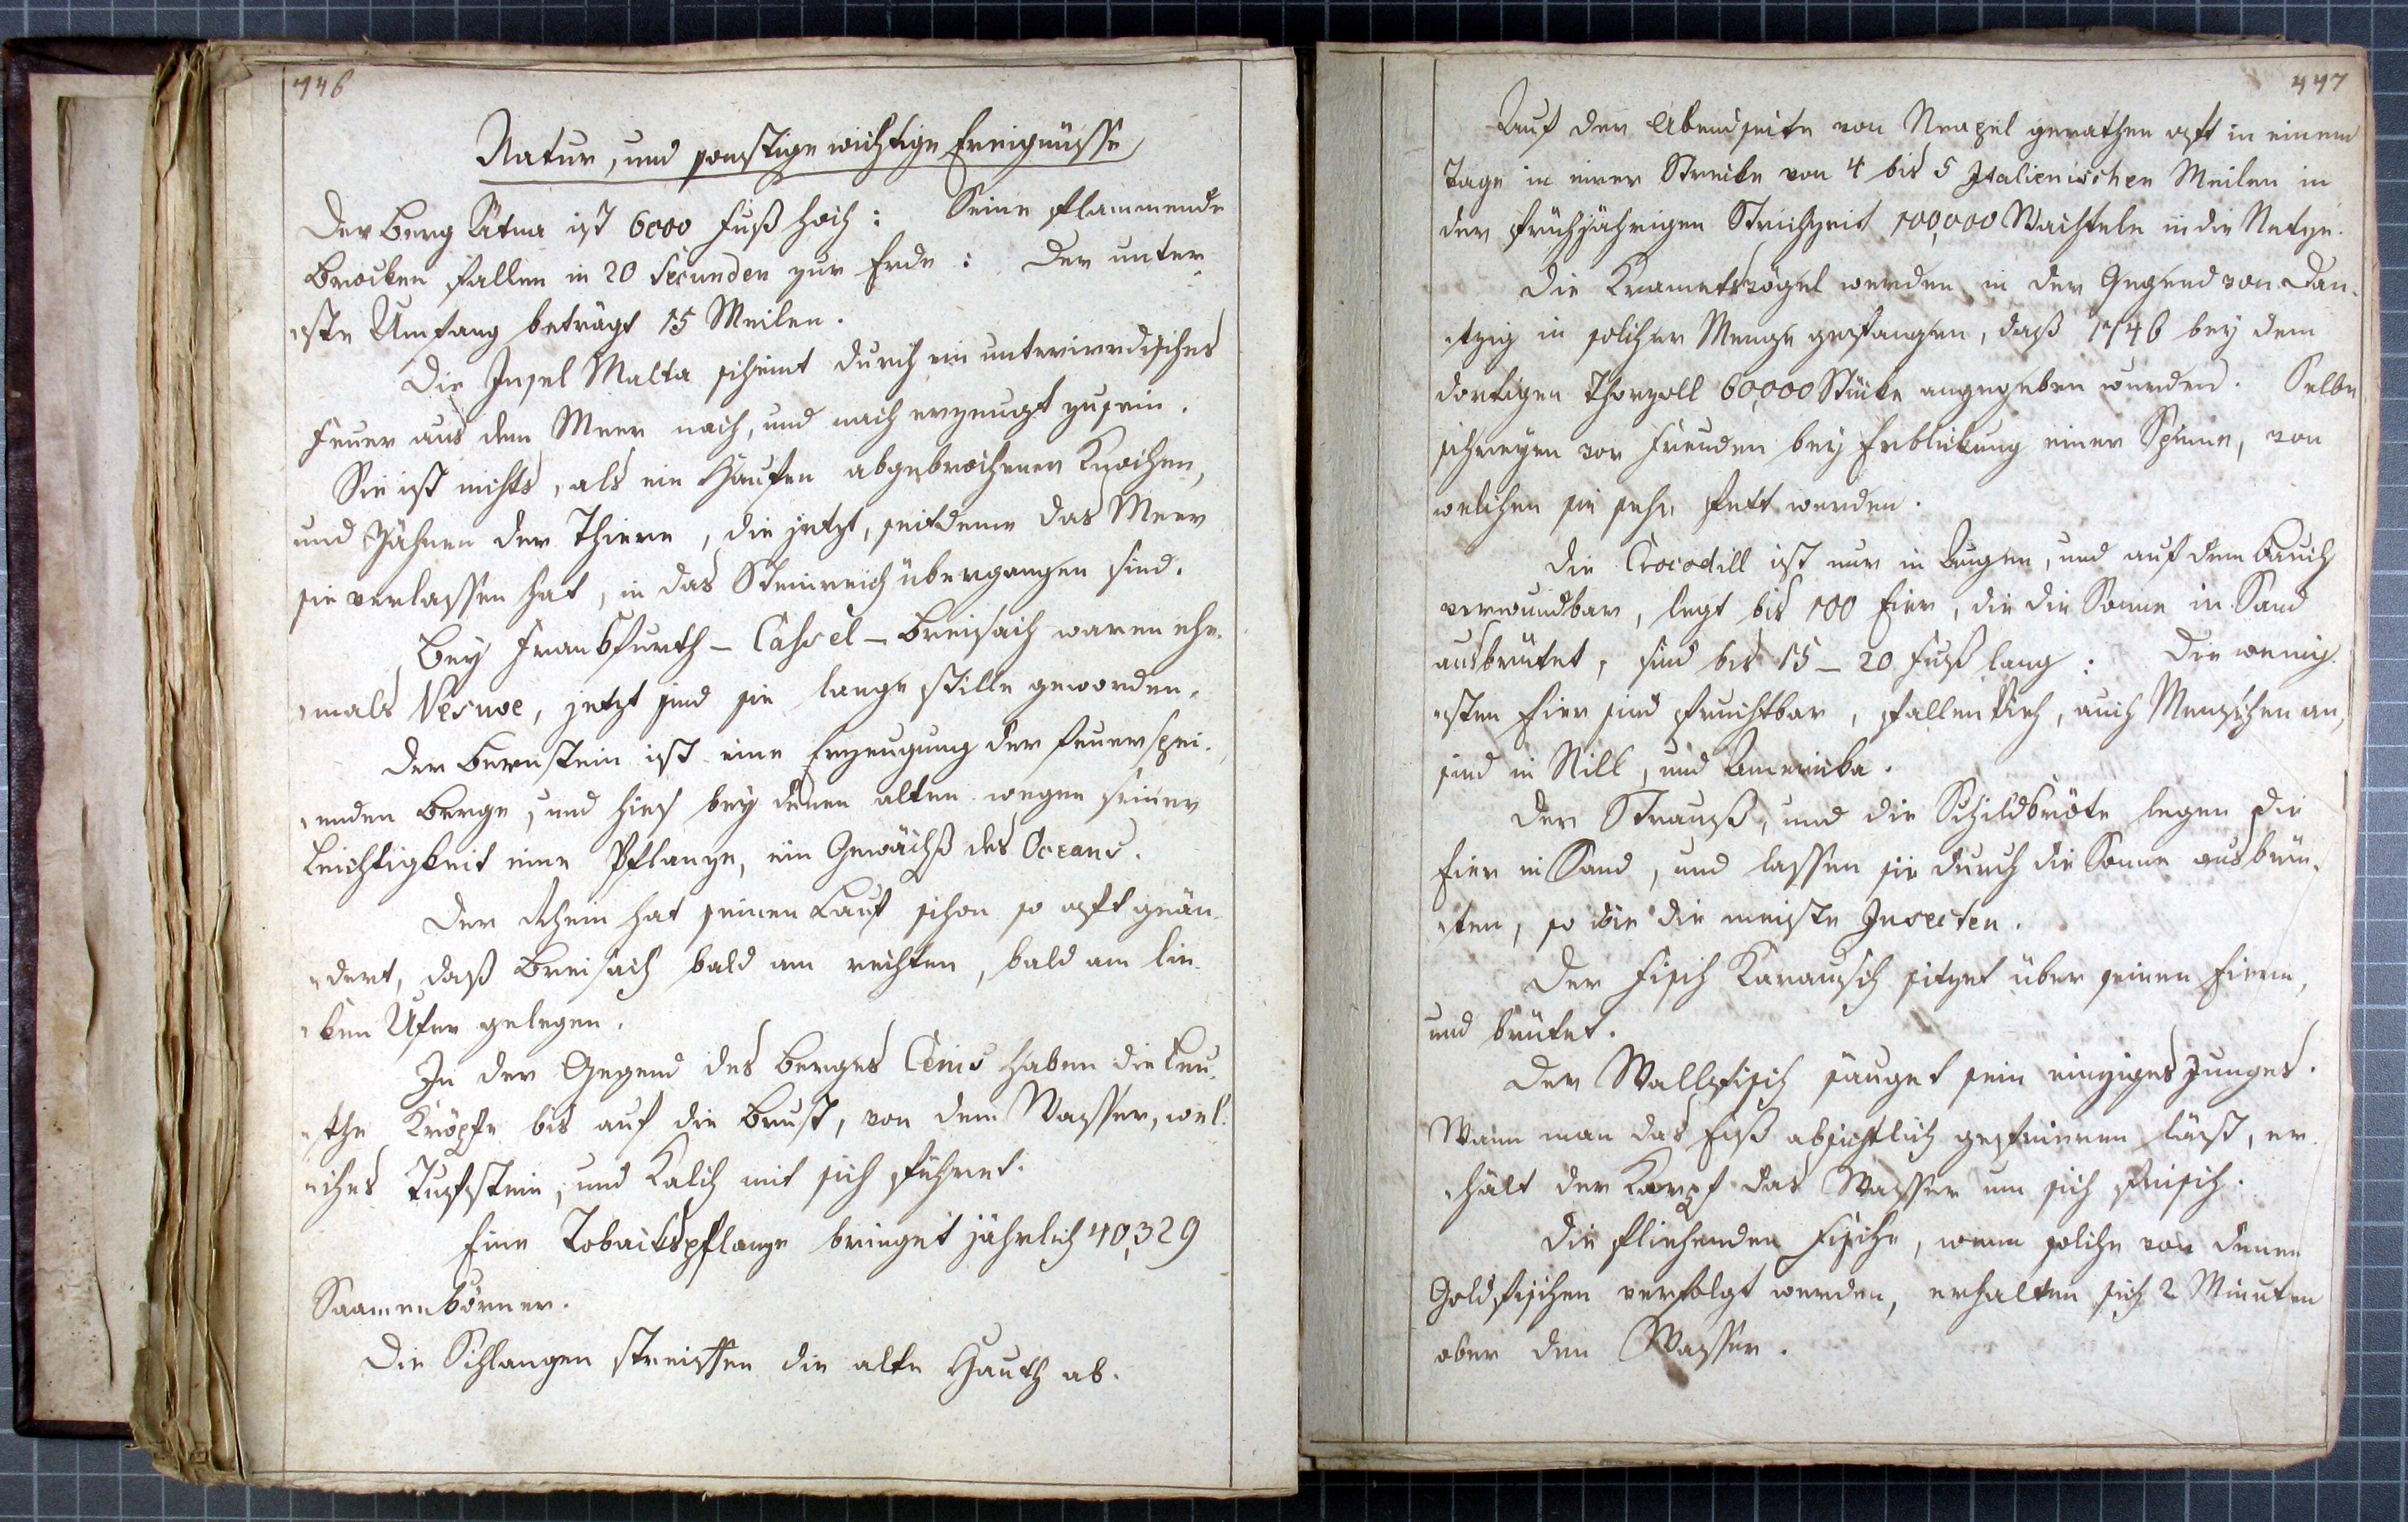 446
Natur, und sonstige wichtige Ereignüsse
Der Berg Ätna ist 6000 Fuß hoch: Seine flammende
Brocken fallen in 20 Secunden zur Erde: Der unter¬
„ste Umfang beträgt 15 Meilen.
Die Insel Malta scheint durch ein unterirrdisches
Feuer aus dem Meer nach, und nach erzeugt zusein.
Sie ist nichts, als ein Haufen abgebrochener Knochen,
und Zähnen der Thiere, die jetzt, seitdeme das Meer
sie verlassen hat, in das Steinreich übergangen sind.
Bey Frankfurth – Cassel – Breisach waren ehe¬
„mals Vesuve, jetzt sind sie lange stille geworden.
Der Bernstein ist eine Erzeugung der feuerspei¬
„enden Berge, und hies bey denen alten wegen seiner
Leichtigkeit eine Pflanze, ein Gewächß des Oceans.
Der Rhein hat seinen Lauf schon so oft geän¬
„dert, daß Breisach bald am rechten, bald am lin¬
„ken Ufer gelegen.
In der Gegend des Berges Cenis haben die Leu¬
„the Kröpfe bis auf die Brust, von dem Wasser, wel¬
„ches Tupfstein, und Kalch mit sich führet.
Eine Tobackspflanze bringet jährlich 40,329
Saamenkörner.
Die Schlangen streiffen die alte Hauth ab.
447
Auf der Abendseite von Neapel gerathen oft in einem
Tage in einer Strecke von 4 bis 5 Italienischen Meilen in
der frühjährigen Strichzeit 100,000 Wachteln in die Netze.
Die Krametsvögel werden in der Gegend von Dan¬
„tzig in solcher Menge gefangen, daß 1746 bey dem
dortigen Thorzoll 60,000 Stücke angegeben wurden. Selbe
schreyen vor Freuden bey Erblickung einer Spinne, von
welchen sie sehr fett werden.
Die Crocodill ist nur in Augen, und auf dem Bauch
verwundbar, legt bis 100 Eier, die die Sonne in Sand
ausbrütet, sind bis 15 – 20 Fuß lang: Die wenig¬
„sten Eier sind fruchtbar, fallen Vieh, auch Menschen an,
sind in Nill, und Amerricka.
Der Strauß, und die Schildkröte legen die
Eier in Sand, und lassen sie durch die Sonne ausbrü¬
„ten, so wie die meiste Insecten.
Der Fisch Karausch sitzet über seinen Eiern,
und brütet.
Der Wallfisch säuget sein einziges Junges.
Wann man das Eiß absichtlich gefrieren läst, er¬
„hält der Karpf das Wasser um sich frisch.
Die fliehenden Fische, wenn solche von denen
Goldfischen verfolgt werden, erhalten sich 2 Minuten
ober den Wasser.